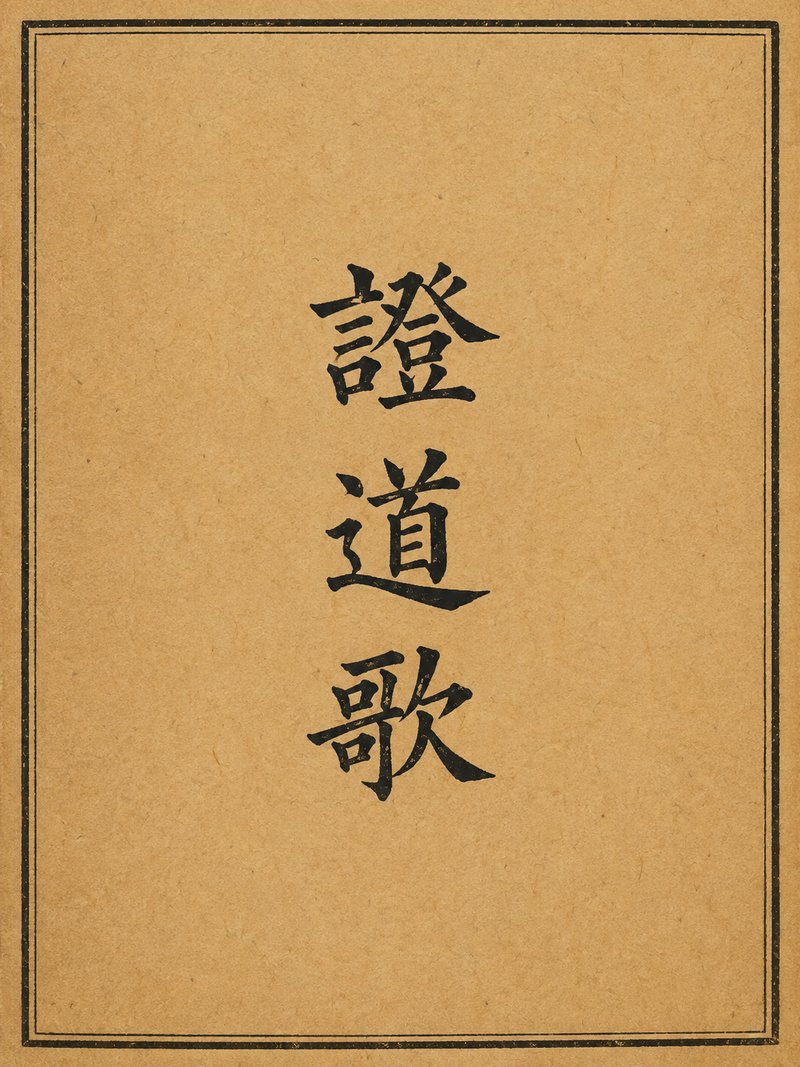 證道歌